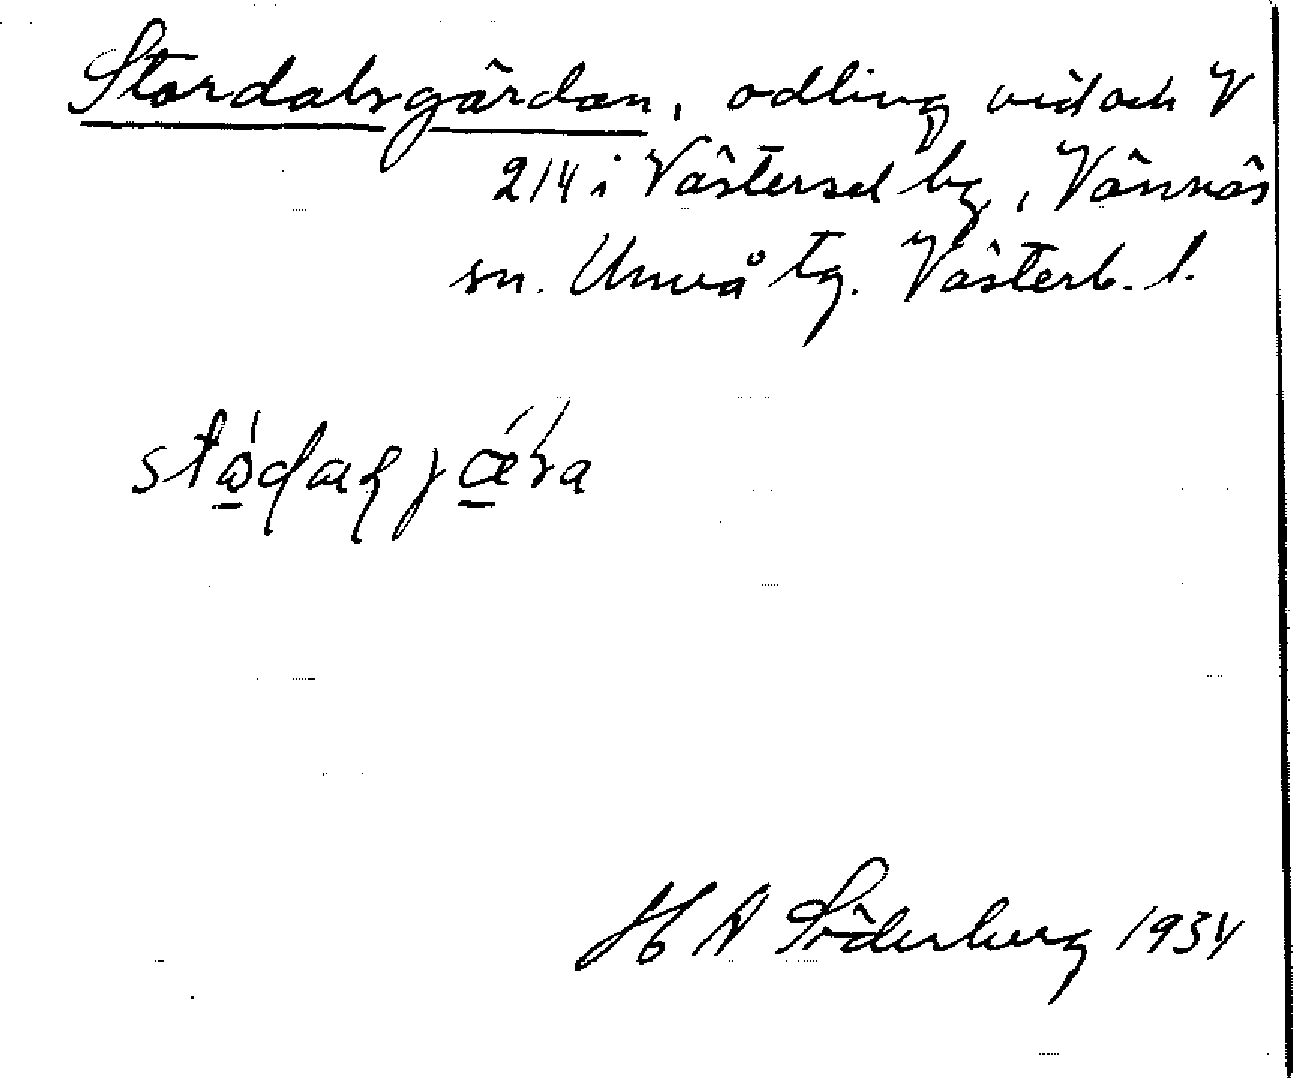 Stordalsgärdan, odling vid och V
2/4 i Västersel by, Vännäs
sn. Umeå tg. Västerb. l.
H A Söderberg 1934